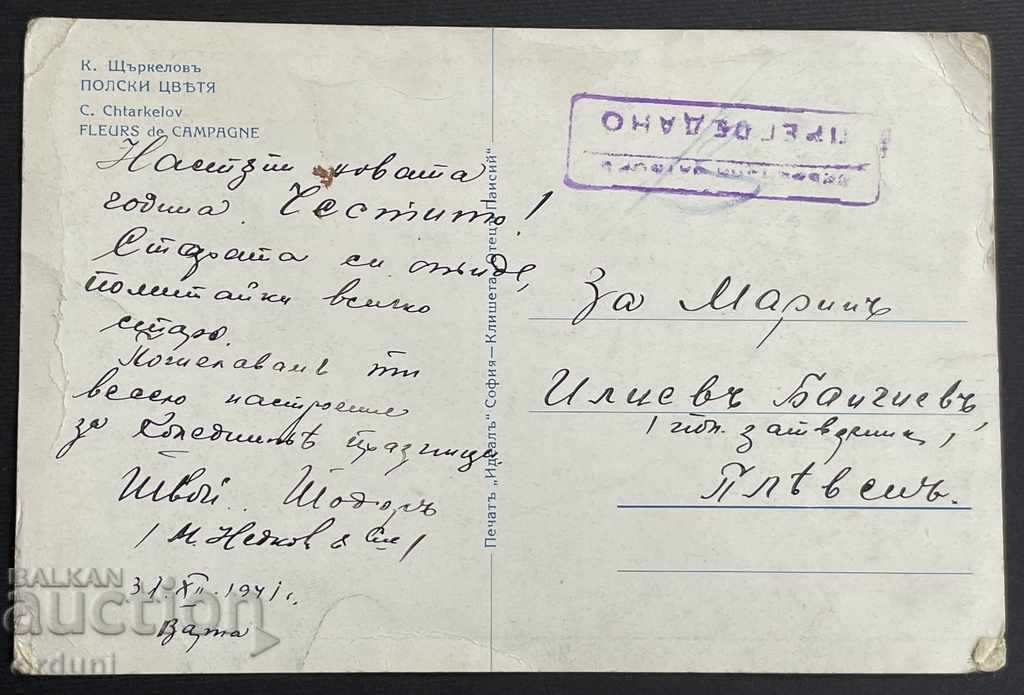 К. Щъркеловъ
ПОЛСКИ ЦВѢТЯ
C. Chtarkelov
FLEURS de CAMPAGNE
Настъпи новата
година. Честито!
Старата си отиде,
помитайки всичко
старо.
Пожелавамъ ти
весело настроение
за Коледнитѣ празници.
Твой.. Тодоръ
/ М. Недков & Сие /
31.XII.1941 г.
Варна
Печатъ „Идеалъ“ София—Клишета Отецъ Паисий“
ПРЕГЛЕДАНО
За Маринъ
Илиевъ Банчевъ
/ пол. затворникъ /
Плѣвенъ.
BALKAN
auction
erduni